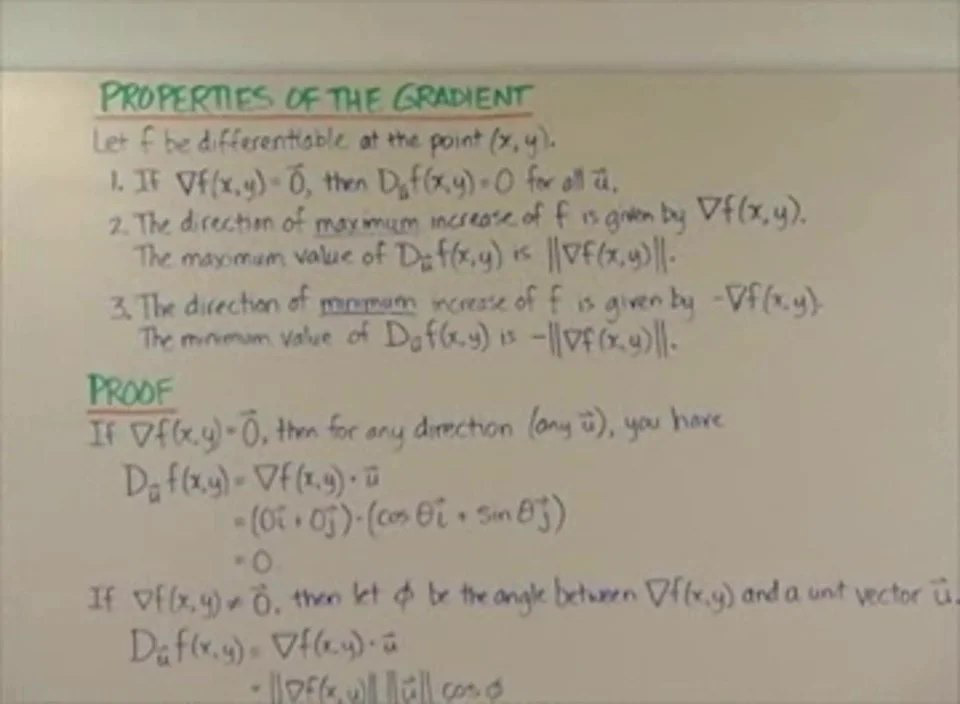 PROPERTIES OF THE GRADIENT
Let f be differentiable at the point (x, y).
1. If ∇f(x,y) = 0⃗, then D_u⃗ f(x,y) = 0 for all u⃗.
2. The direction of maximum increase of f is given by ∇f(x,y).
The maximum value of D_u⃗ f(x,y) is ||∇f(x,y)||.
3. The direction of minimum increase of f is given by -∇f(x,y).
The minimum value of D_u⃗ f(x,y) is -||∇f(x,y)||.
PROOF
If ∇f(x,y) = 0⃗, then for any direction (any u⃗), you have
D_u⃗ f(x,y) = ∇f(x,y) · u⃗
= (0i⃗ + 0j⃗) · (cos θi⃗ + sin θj⃗)
= 0
If ∇f(x,y) ≠ 0⃗, then let φ be the angle between ∇f(x,y) and a unit vector u⃗.
D_u⃗ f(x,y) = ∇f(x,y) · u⃗
= ||∇f(x,y)|| ||u⃗|| cos φ